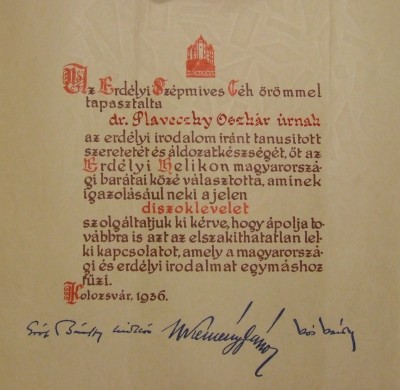 Az Erdélyi Szépmives Céh örömmel
tapasztalta
dr. Plaveczky Oszkár úrnak
az erdélyi irodalom iránt tanusitott
szeretetét és áldozatkészségét, őt az
Erdélyi Helikon magyarorszá-
gi barátai közé választotta, aminek
igazolásául neki a jelen
diszoklevelet
szolgáltatjuk ki kérve, hogy ápolja to-
vábbra is azt az elszakithatatlan lel-
ki kapcsolatot, amely a magyarorszá-
gi és erdélyi irodalmat egymáshoz
fűzi.
Kolozsvár. 1936.
Gróf Bánffy Miklós Kemény János Kós Károly